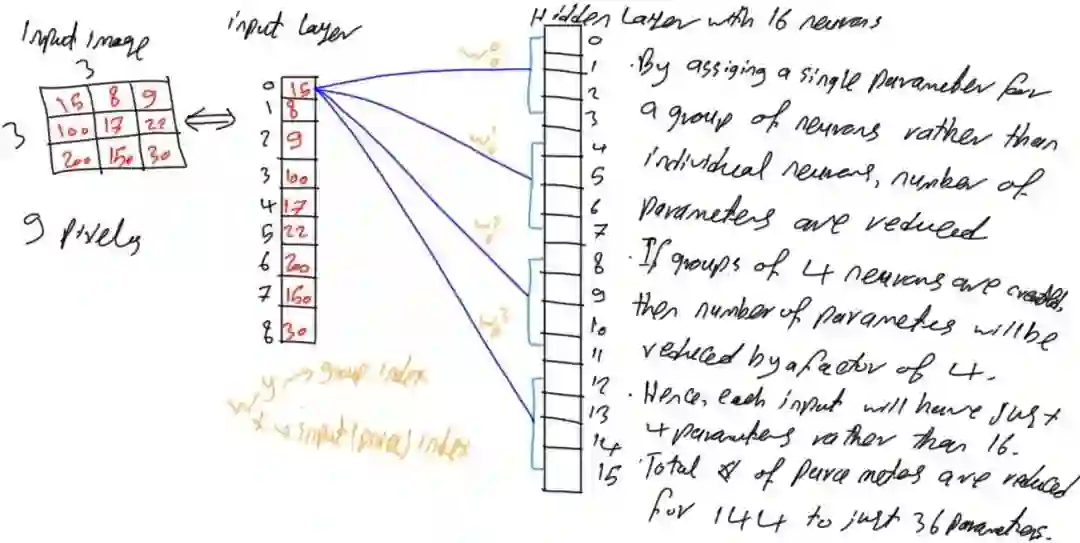 Input Image
3
3
15 8 9
100 17 22
200 150 30
9 pixels
input Layer
0 15
1 8
2 9
3 100
4 17
5 22
6 200
7 150
8 30
w₀⁰
w₀¹
w₀²
w₀³
y → group index
w
x → input (pixel) index
Hidden Layer with 16 neurons
0
1
2
3
4
5
6
7
8
9
10
11
12
13
14
15
. By assiging a single parameter for
a group of neurons rather than
individual neurons, number of
parameters are reduced
. If groups of 4 neurons are created,
then number of parameters will be
reduced by a factor of 4.
. Hence, each input will have just
4 parameters rather than 16.
. Total # of parameters are reduced
for 144 to just 36 parameters.